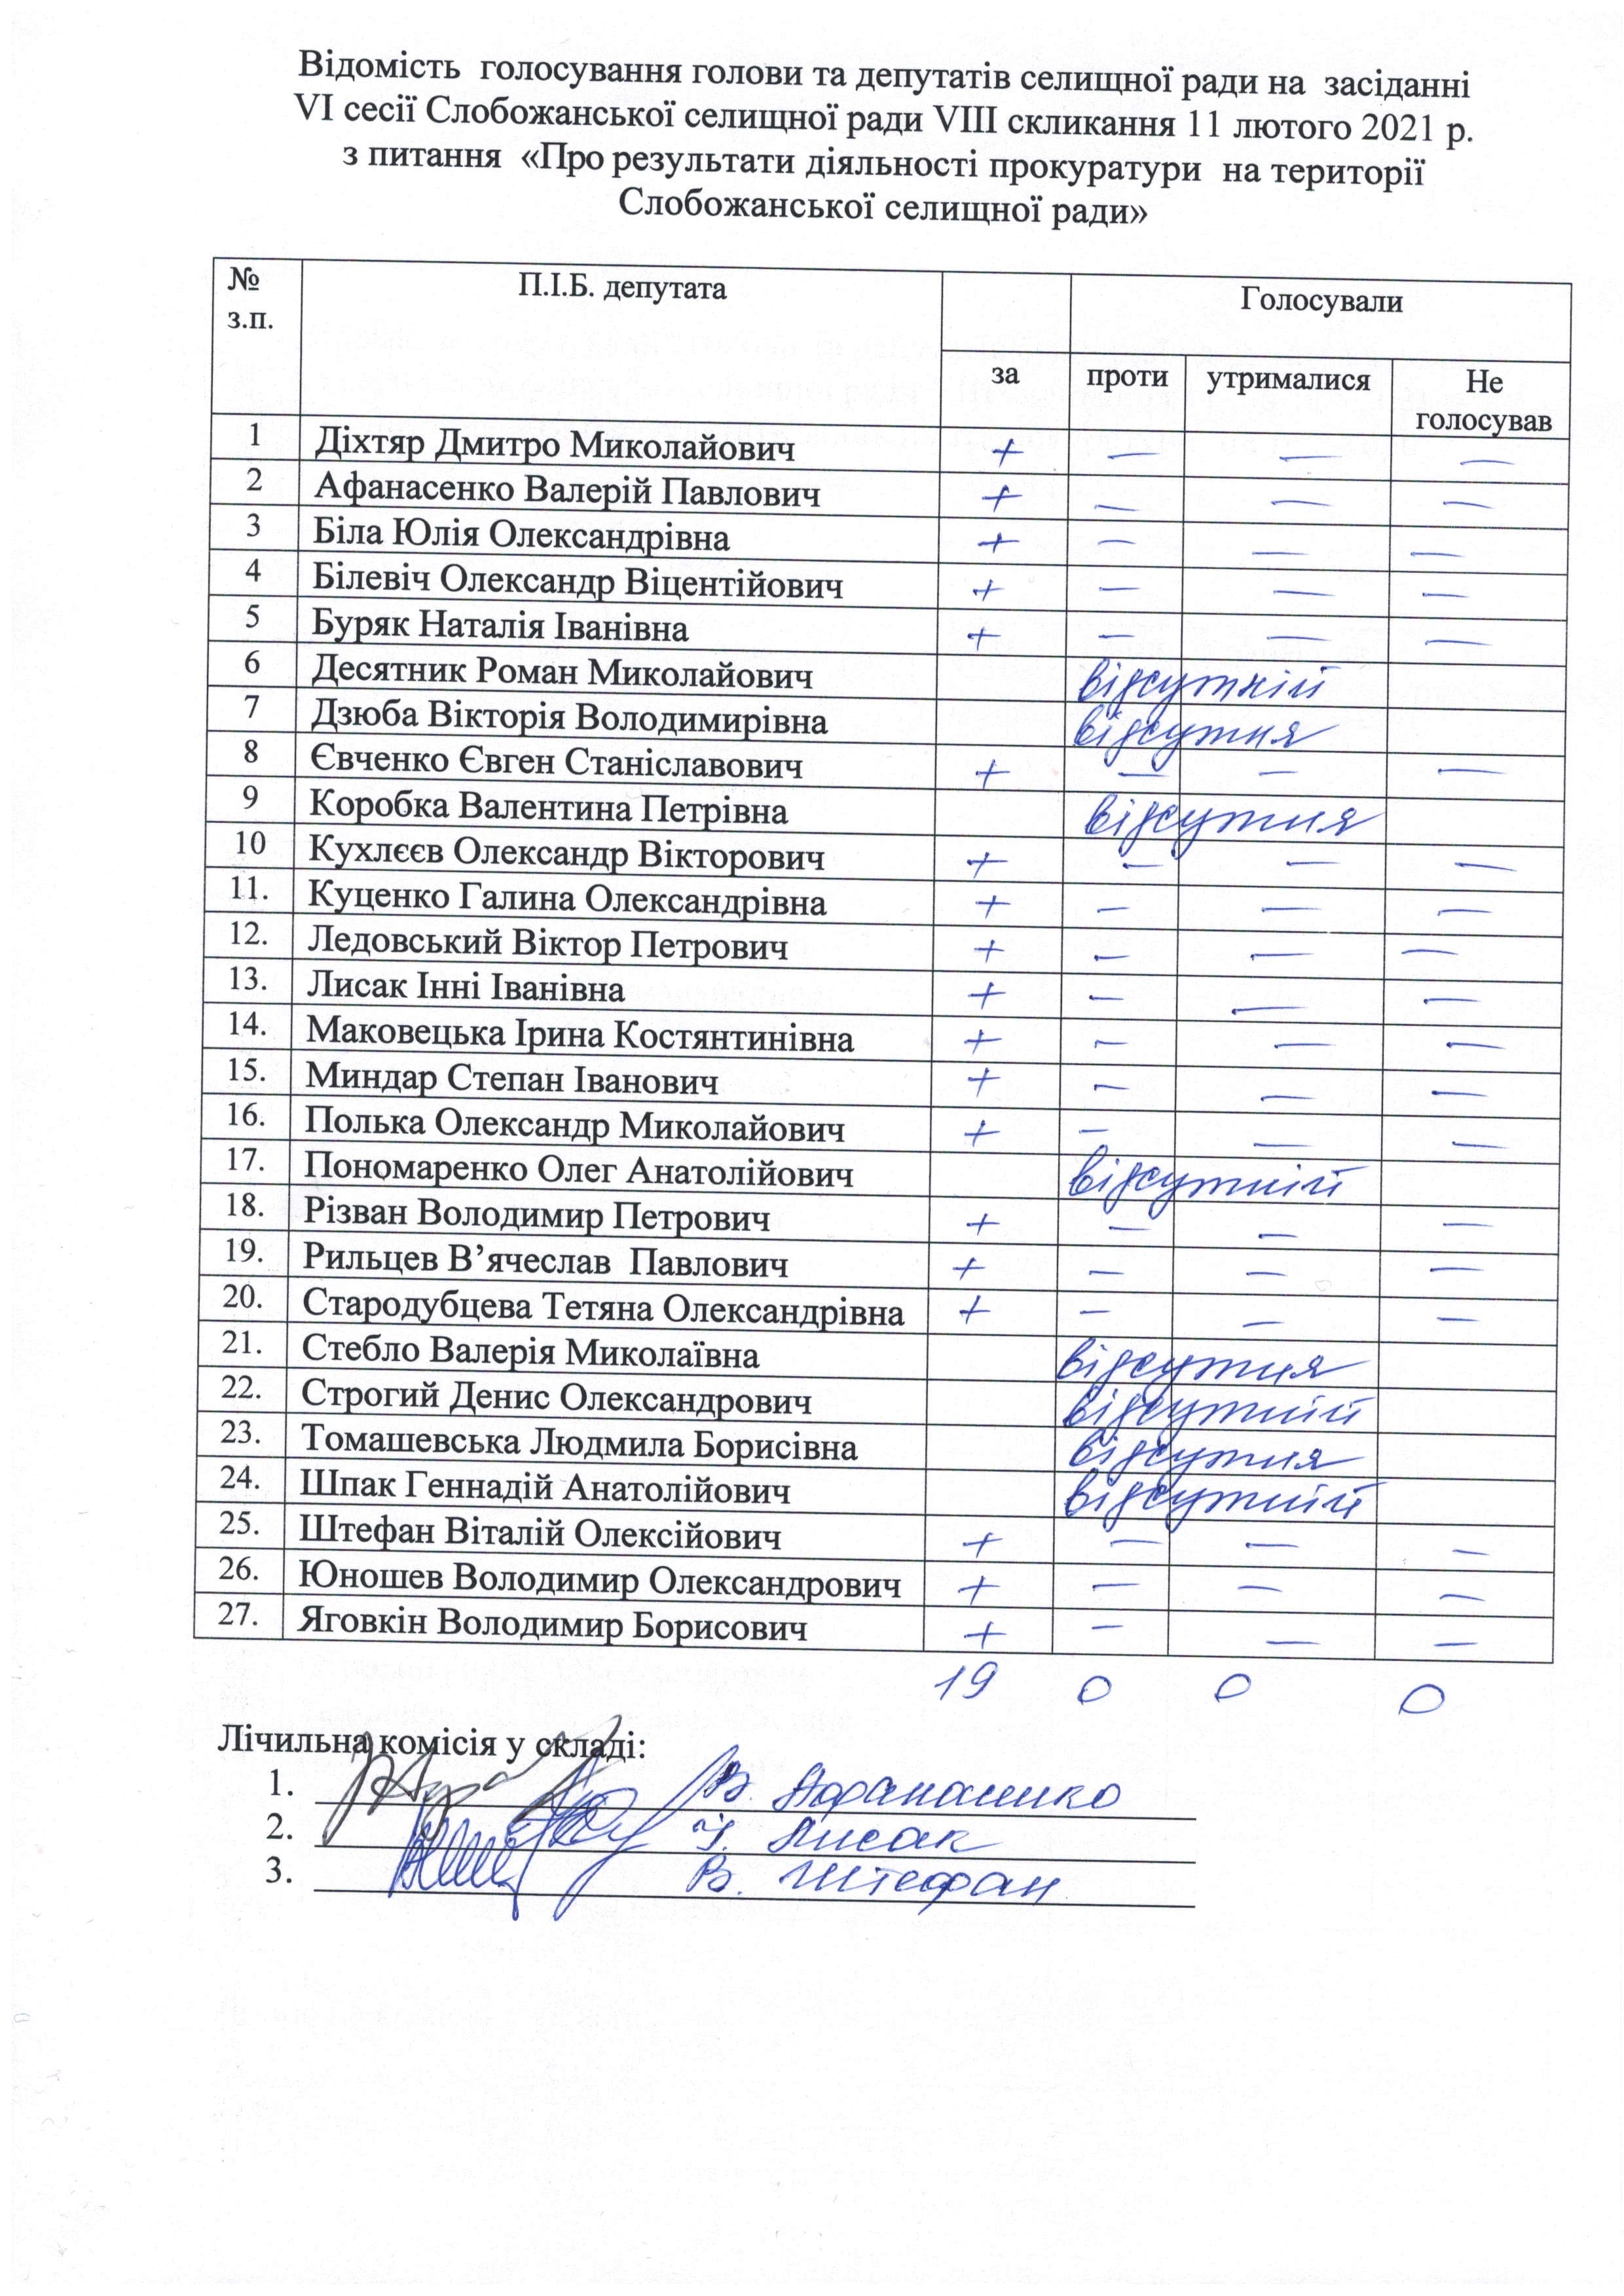 Відомість голосування голови та депутатів селищної ради на засіданні
VI сесії Слобожанської селищної ради VIII скликання 11 лютого 2021 р.
з питання «Про результати діяльності прокуратури на території
Слобожанської селищної ради»
№ з.п. П.І.Б. депутата Голосували
за проти утрималися Не голосував
1 Діхтяр Дмитро Миколайович + — — —
2 Афанасенко Валерій Павлович + — — —
3 Біла Юлія Олександрівна + — — —
4 Білевіч Олександр Віцентійович + — — —
5 Буряк Наталія Іванівна + — — —
6 Десятник Роман Миколайович відсутній
7 Дзюба Вікторія Володимирівна відсутня
8 Євченко Євген Станіславович + — — —
9 Коробка Валентина Петрівна відсутня
10 Кухлєєв Олександр Вікторович + — — —
11. Куценко Галина Олександрівна + — — —
12. Ледовський Віктор Петрович + — — —
13. Лисак Інні Іванівна + — — —
14. Маковецька Ірина Костянтинівна + — — —
15. Миндар Степан Іванович + — — —
16. Полька Олександр Миколайович + — — —
17. Пономаренко Олег Анатолійович відсутній
18. Різван Володимир Петрович + — — —
19. Рильцев В’ячеслав Павлович + — — —
20. Стародубцева Тетяна Олександрівна + — — —
21. Стебло Валерія Миколаївна відсутня
22. Строгий Денис Олександрович відсутній
23. Томашевська Людмила Борисівна відсутня
24. Шпак Геннадій Анатолійович відсутній
25. Штефан Віталій Олексійович + — — —
26. Юношев Володимир Олександрович + — — —
27. Яговкін Володимир Борисович + — — —
19 0 0 0
Лічильна комісія у складі:
1. В. Афанасенко
2. І. Лисак
3. В. Штефан